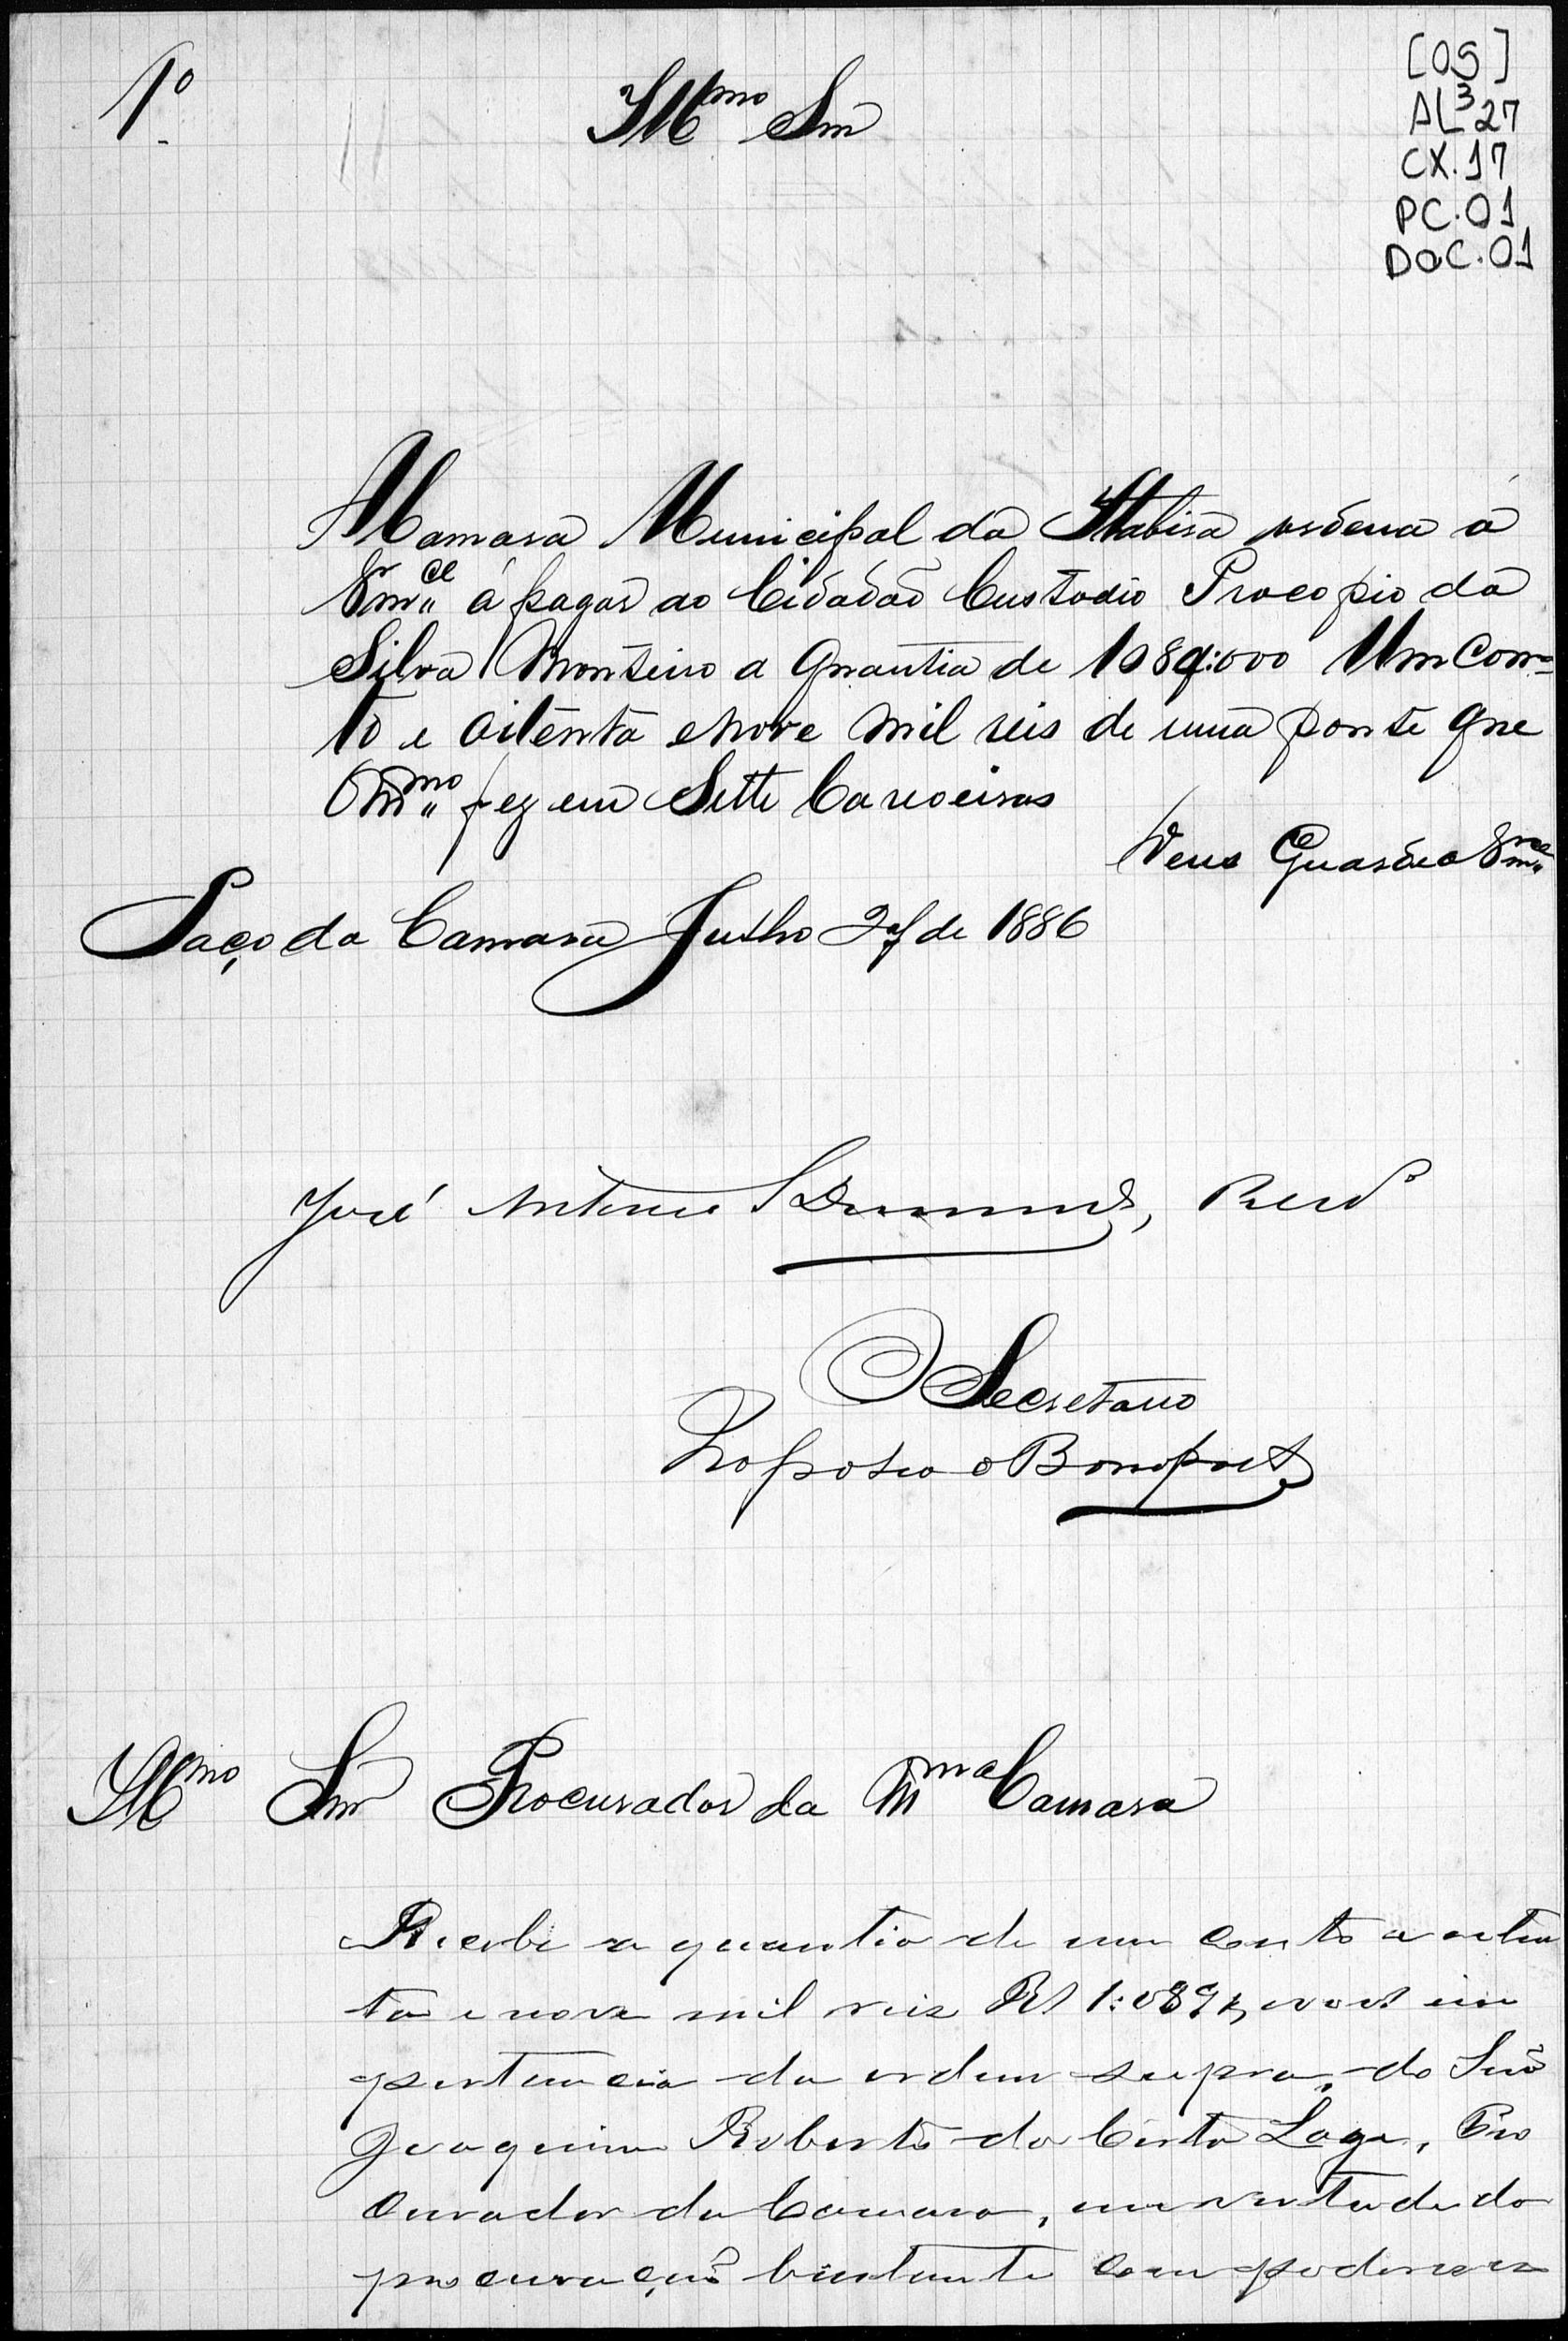 1º
Illmo Snr
[05]
AL3 27
CX. 17
PC. 01
DOC. 01
A Camara Municipal da Itabira ordena á
Vmce á pagar ao Cidadão Custodio Procopio da
Silva Monteiro a quantia de 1089:000 Um Con=
to e oitenta e nove mil reis de uma ponte que
O mmo fez em Sette Caxoeiras
Deus Guarde a Vmce
Paço da Camara Julho 27 de 1886
José Antonio S Drummond, Presde
O Secretario
Bomfort
Illmo Snr Procurador da Mma Camara
Recebi a quantia de um conto e oiten
ta e nove mil reis Rs 1:089$000 im
portancia da ordem supra, do Snr
Joaquim Roberto da Costa Lage, Pro
curador da Camara, em virtude da
procuração bastante com poderes